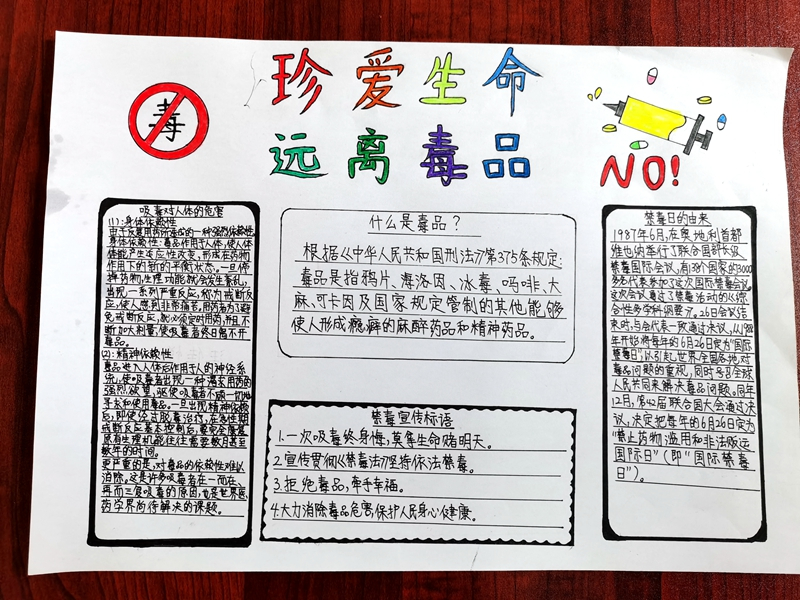 珍爱生命
远离毒品
毒
NO!
吸毒对人体的危害
(1):身体依赖性
由于反复用药所造成的一种强烈依赖性
身体依赖性:毒品作用于人体,使人体
体能产生适应性改变,形成在药物
作用下的新的平衡状态。一旦停
掉药物,生理功能就会发生紊乱,
出现一系列严重反应,称为戒断反
应,使人感到非常痛苦。用药者为了避
免戒断反应,就必须定时用药,并且不
断加大剂量,使吸毒者终日离不开
毒品。
(2):精神依赖性
毒品进入人体后作用于人的神经系
统,使吸毒者出现一种渴求用药的
强烈欲望,驱使吸毒者不顾一切地
寻求和使用毒品。一旦出现精神依赖
后,即使经过脱毒治疗,在急性期
戒断反应基本控制后,要完全康复
原有生理机能往往需要数月甚至
数年的时间。
更严重的是,对毒品的依赖性难以
消除。这是许多吸毒者在一而再、
再而三复吸毒的原因,也是世界医、
药学界尚待解决的课题。
什么是毒品?
根据《中华人民共和国刑法》第375条规定:
毒品是指鸦片、海洛因、冰毒、吗啡、大
麻、可卡因及国家规定管制的其他能够
使人形成瘾癖的麻醉药品和精神药品。
禁毒宣传标语
1.一次吸毒终身悔,莫等生命赌明天。
2.宣传贯彻《禁毒法》坚持依法禁毒。
3.拒绝毒品,牵手幸福。
4.大力消除毒品危害,保护人民身心健康。
禁毒日的由来
1987年6月,在奥地利首都
维也纳举行了联合国部长级
禁毒国际会议,有138个国家的3000
多名代表参加了这次国际禁毒会议。
这次会议通过了禁毒活动的《综
合性多学科纲要》。26日会议结
束时,与会代表一致通过决议,从1988
年开始将每年的6月26日定为"国际
禁毒日",以引起世界全国各地对
毒品问题的重视,同时号召全球
人民共同来解决毒品问题。同年
12月,第42届联合国大会通过决
议,决定把每年的6月26日定为
"禁止药物滥用和非法贩运
国际日"(即"国际禁毒
日")。